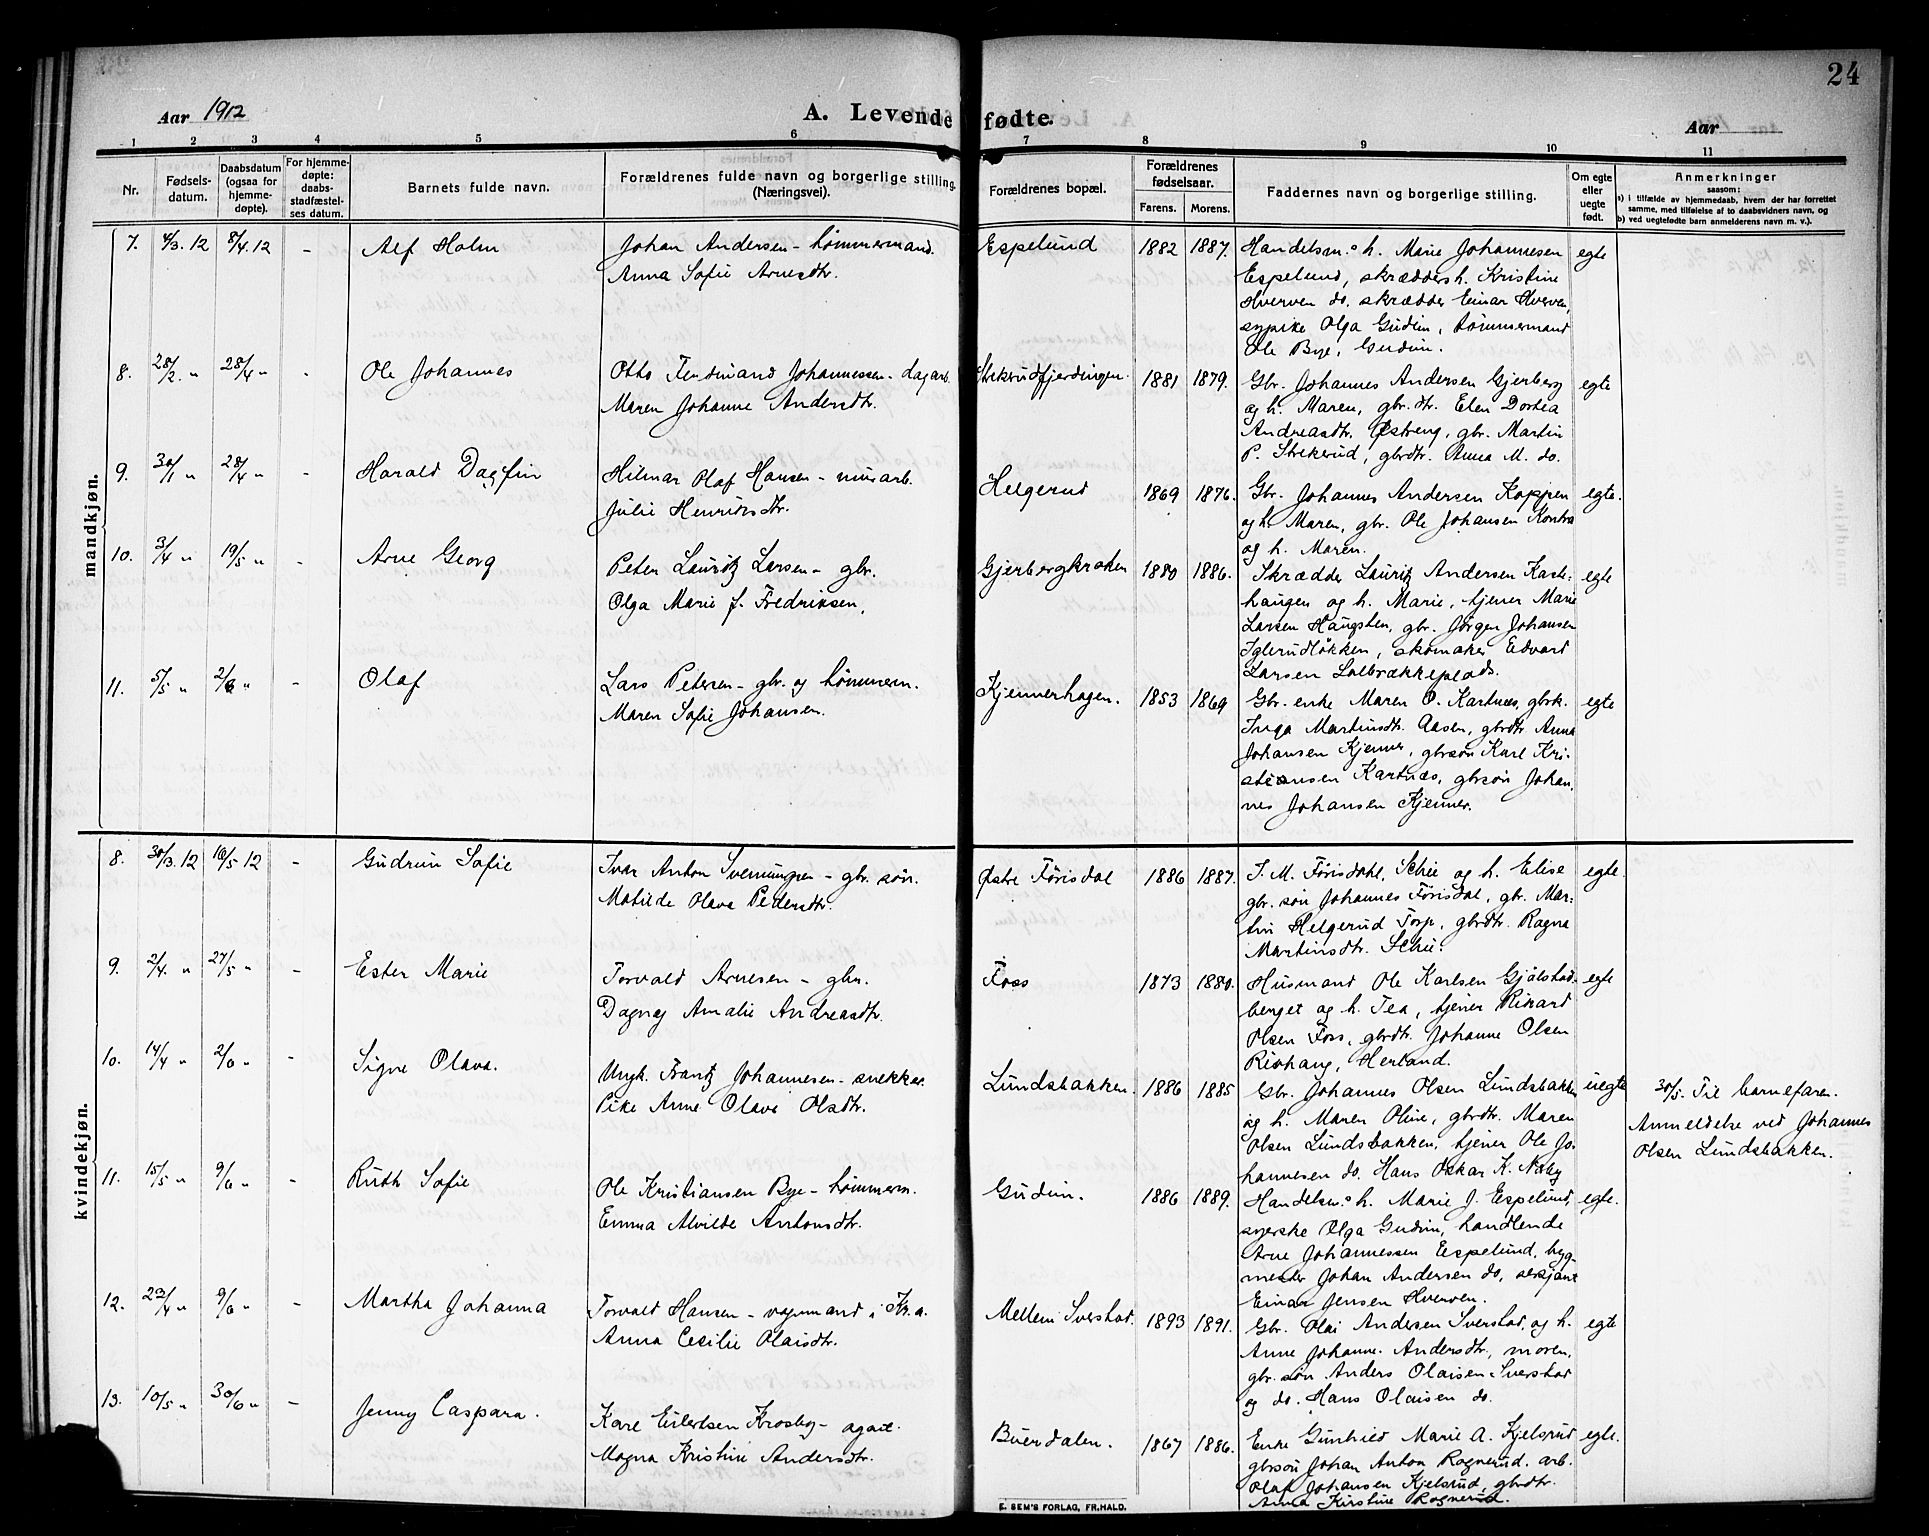 24
Aar 1912
A. Levende fødte.
Aar
1 2 3 4 5 6 7 8 9 10 11
Nr.
Fødsels-
datum.
Daabsdatum
(ogsaa for
hjemme-
døpte).
For hjemme-
døpte:
daabs-
stadfæstel-
ses datum.
Barnets fulde navn.
Forældrenes fulde navn og borgerlige stilling.
(Næringsvei).
Forældrenes bopæl.
Forældrenes
fødselsaar.
Farens. Morens.
Faddernes navn og borgerlige stilling.
Om egte
eller
uegte
født.
Anmerkninger
saasom:
a) i tilfælde av hjemmedaab, hvem der har forrettet
samme, med tilføielse af to daabsvidners navn, og
b) ved uegtefødte barn anmelderens navn m. v.).
mandkjøn.
7. 4/3. 12 8/4. 12 - Alf Holm
Johan Andersen - tømmermand.
Anna Sofie Arnesdtr.
Espelund 1882 1887.
Handelsm.s h. Marie Johannesen
Espelund, skrædders h. Kristine
Hverven do. skrædder Einar Hverven,
sypike Olga Gudim, tømmermand
Ole Bye, Gudim.
egte
8. 28/2. " 28/4 " - Ole Johannes
Otto Ferdinand Johannessen - dagarb.
Maren Johanne Andersdtr.
Strekerudfjerdingen. 1881 1879.
Gbr. Johannes Andersen Gjerberg
og h. Maren, gbr. dtr. Elen Dortea
Andreasdtr. Østreng, gbr. Martin
P. Strekerud, gbrdtr. Anna M. do.
egte
9. 30/1 " 28/4 " - Harald Dagfin
Hilmar Olaf Hansen - murarb.
Julie Henriksdtr.
Helgerud 1869 1876.
Gbr. Johannes Andersen Koppen
og h. Maren, gbr. Ole Johansen Kontra
og h. Maren.
egte.
10. 3/4 " 19/5 " - Arne Georg
Peter Lauritz Larsen - gbr.
Olga Marie f. Fredriksen,
Gjerbergkroken 1880 1886.
Skrædder Lauritz Andersen Kaste-
haugen og h. Marie, tjener Marie
Larsen Haugsten, gbr. Jørgen Johansen
Iglerudløkken, skomaker Edvard
Larsen Lalbrækkeplads.
egte
11. 5/5 " 2/6 " - Olaf
Lars Petersen - gbr. og tømmerm.
Maren Sofie Johansen.
Kjennerhagen. 1853 1869
Gbr. enke Maren O. Kartnæs, gbrk.
Inga Martinsdtr. Aasen, gbrdtr Anna
Johansen Kjenner, gbrsøn Karl Kri-
stiansen Kartnæs, gbrsøn Johan-
nes Johansen Kjenner.
egte
kvindekjøn.
8. 30/3. 12 16/5 12 - Gudrun Sofie
Ivar Anton Svenungsen - gbr. søn.
Matilde Olava Pedersdtr.
Østre Førisdal 1886 1887.
J. M. Førisdahl, Schie og h. Elise
gbr. søn Johannes Førisdal, gbr. Mar-
tin Helgerud Torp, gbrdtr. Ragna
Martinsdtr. Schie.
egte.
9. 2/4. " 27/5 " - Ester Marie
Torvald Arnesen - gbr.
Dagny Amalie Andreasdtr.
Foss 1873 1880.
Husmand Ole Karlsen Gjølstad-
berget og h. Tea, tjener Rikard
Olsen Foss, gbrdtr. Johanne Olsen
Rishaug, Herland.
egte
10. 14/4 " 2/6 " - Signe Olava.
Ungk. Frantz Johannesen - snekker
Pike Anne Olava Olsdtr.
Lundsbakken. 1886 1885
Gbr. Johannes Olsen Lundsbakken
og h. Maren Oline, gbrdtr. Maren
Olsen Lundsbakken, tjener Ole Jo-
hannesen do. Hans Oskar K. Næby
uegte
30/5. Til barnefaren.
Anmeldelse ved Johannes
Olsen Lundsbakken.
11. 15/5 " 9/6 " - Ruth Sofie
Ole Kristiansen Bye - tømmerm.
Emma Alvilde Antonsdtr.
Gudim. 1886 1889.
Handelsm.s h. Marie J. Espelund,
syerske Olga Gudim, handlende
Arne Johannessen Espelund, byg-
mester Johan Andersen do, sersjant
Einar Jensen Hverven.
egte.
12. 23/4 " 9/6 " - Martha Johanna
Torvald Hansen - vognmand i Kr.a.
Anna Cecilie Olaisdtr.
Mellem Sverstad. 1893 1891.
Gbr. Olai Andersen Sverstad, og h.
Anne Johanne Andersdtr, moren,
gbr. søn Anders Olaisen Sverstad
og do. Hans Olaisen do.
egte
13. 10/5 " 30/6 " - Jenny Caspara.
Karl Eilertsen Krosby - agent.
Magna Kristine Andersdtr.
Buerdalen. 1867 1886.
Enke Gunhild Marie A. Kjelsrud
gbrsøn Johan Anton Rognerud. arb.
Olaf Johansen Kjelsrud, gbrdtr.
Anna Kirstine Rognerud.
egte.
E. SEM'S FORLAG, FR.HALD.